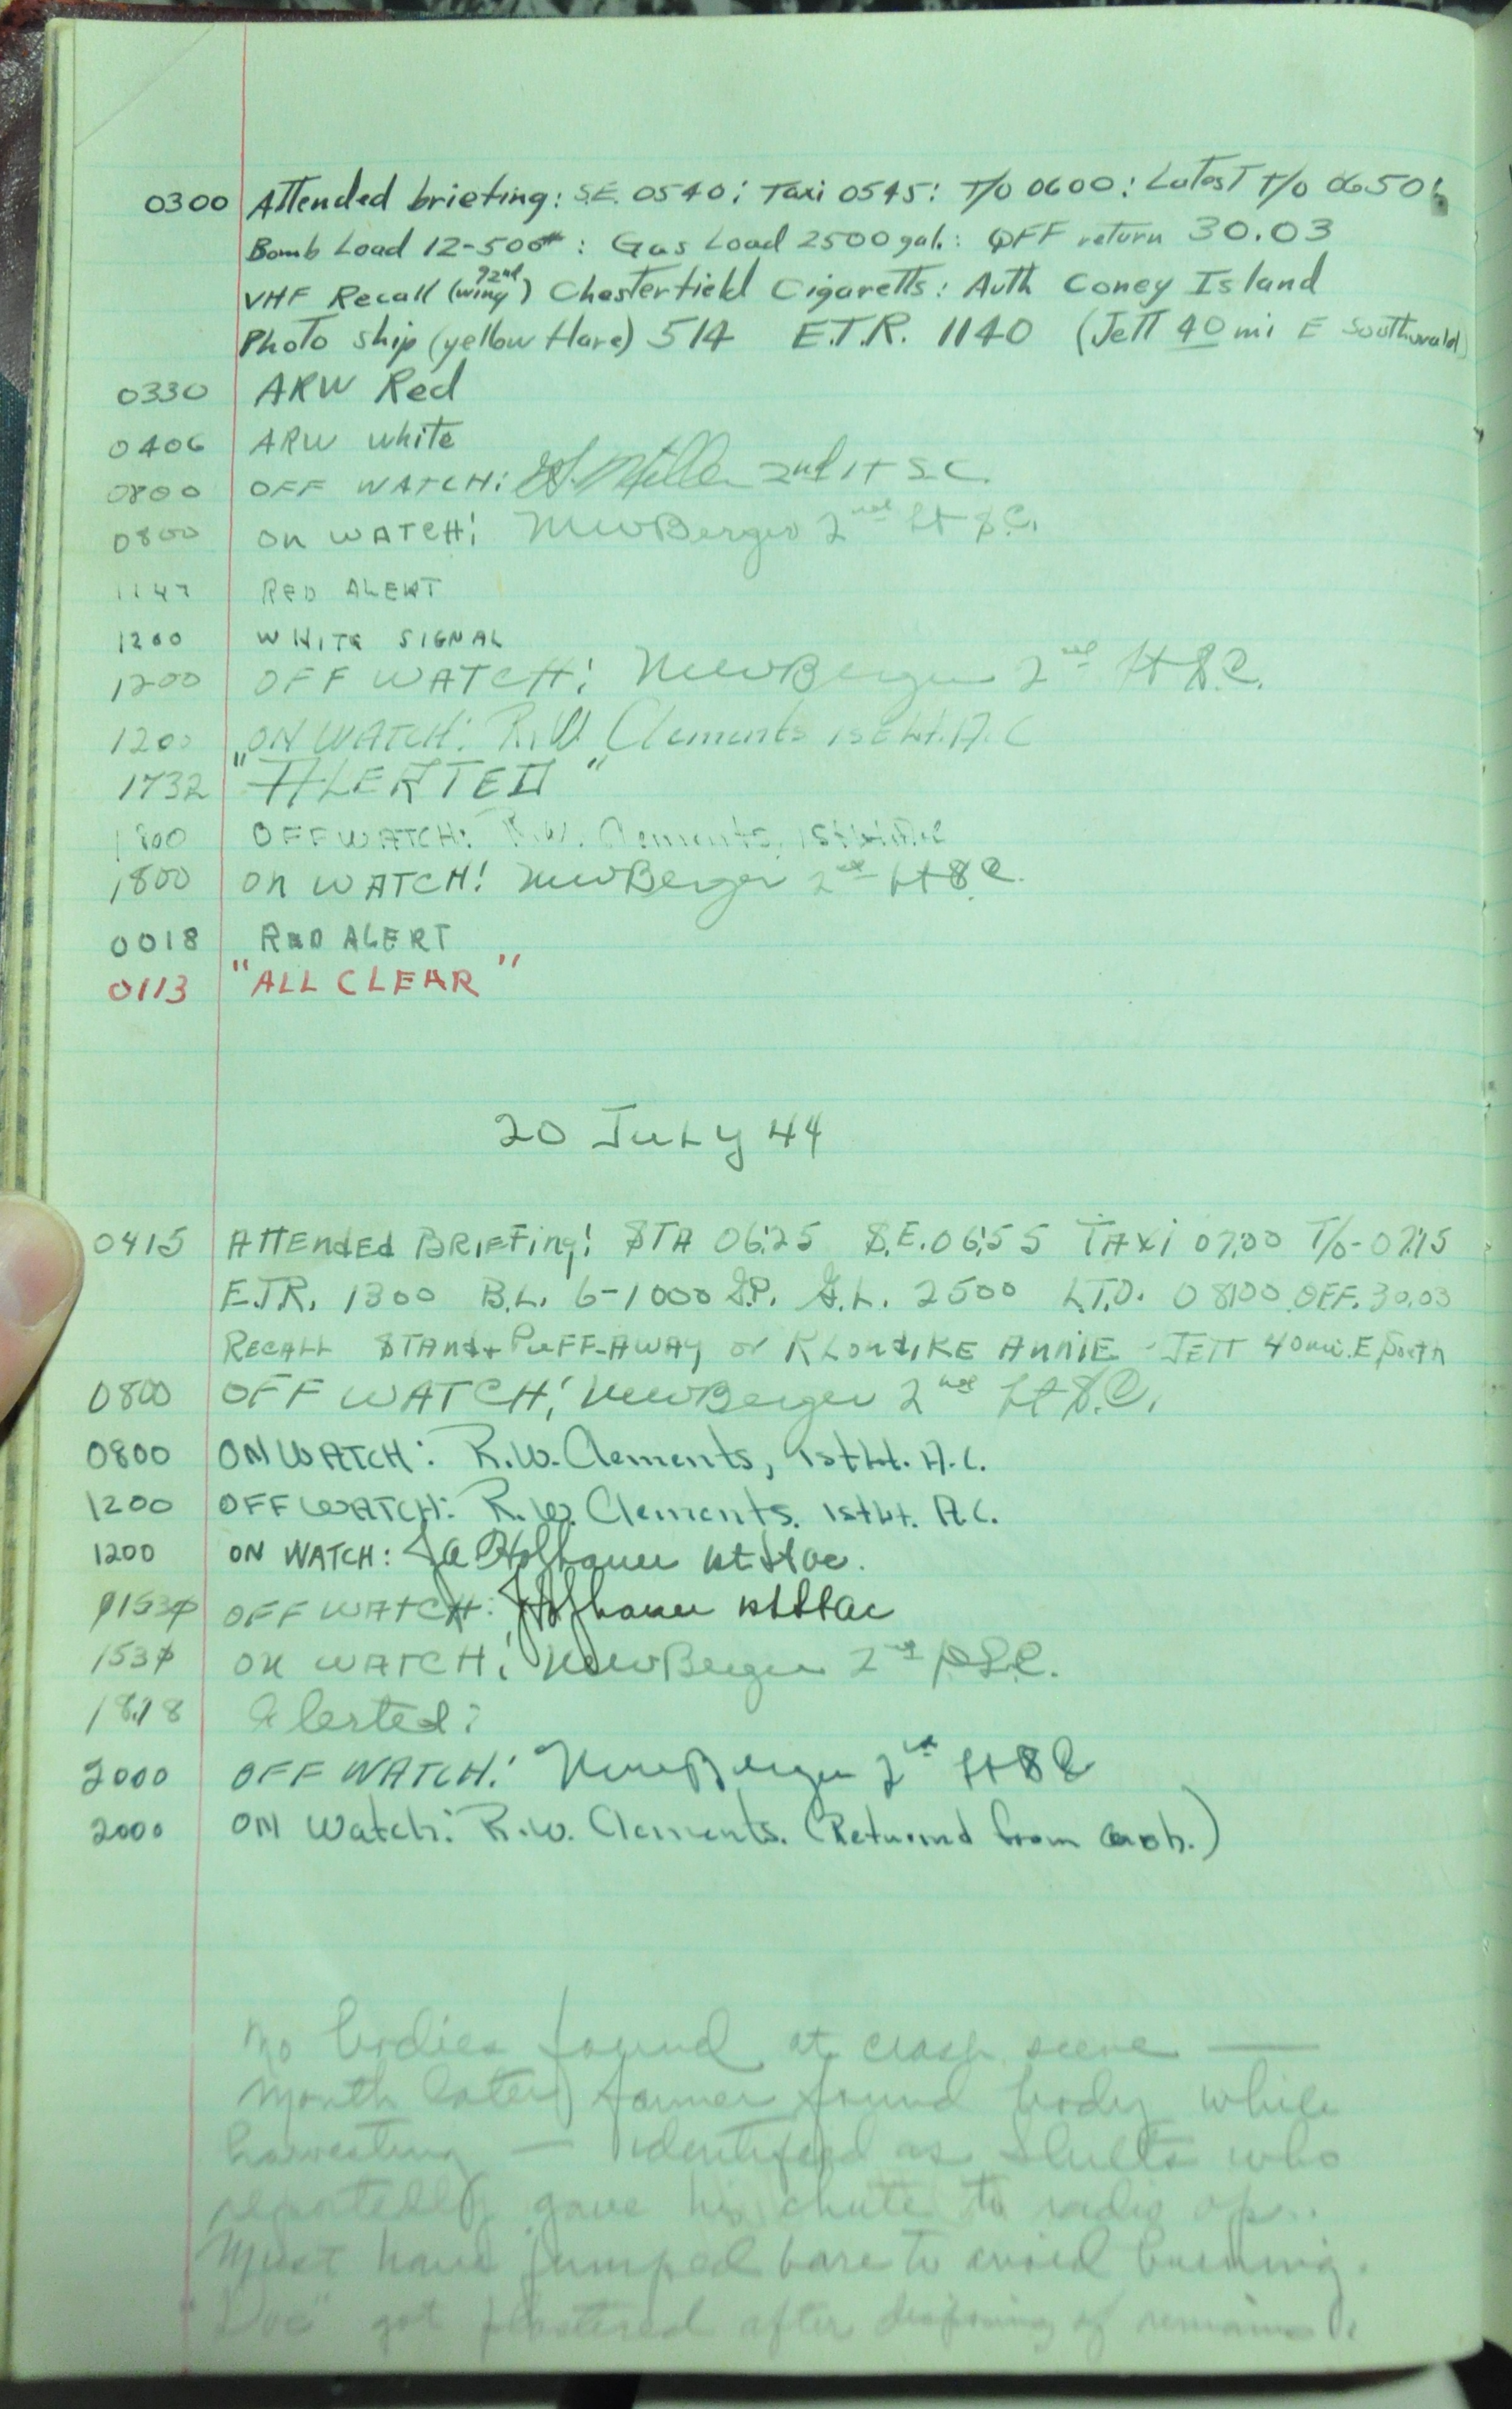 0300 Attended briefing: S.E. 0540: Taxi 0545: T/O 0600: Latest T/O 0650:
Bomb Load 12-500#: Gas Load 2500 gal.: QFF return 30.03
VHF Recall (92nd wing) Chesterfield Cigaretts: Auth Coney Island
Photo ship (yellow flare) 514 E.T.R. 1140 (Jett 40 mi E Southwald)
0330 ARW Red
0406 ARW white
0800 OFF WATCH: Miller 2nd Lt S.C.
0800 On WATCH: MWBerger 2nd Lt S.C.
1147 RED ALERT
1200 WHITE SIGNAL
1200 OFF WATCH: MWBerger 2nd Lt S.C.
1200 ON WATCH: R.W. Clements 1st Lt. A.C
1732 "ALERTED"
1800 OFF WATCH: R.W. Clements, 1st Lt. A.C
1800 On WATCH! MWBerger 2nd Lt S.C.
0018 RED ALERT
0113 "ALL CLEAR"
20 July 44
0415 ATTEndEd BRIEFing: STA 06:25 S.E. 06:55 TAXi 07:00 T/O-07:15
E.T.R. 1300 B.L. 6-1000 G.P. G.L. 2500 L.T.O. 08:00 QFF. 30.03
RECALL STAnd+ PuFF-AWAy or KLondiKE AnniE - JETT 40 mi. E South
0800 OFF WATCH: MWBerger 2nd Lt S.C.
0800 ON WATCH: R.W. Clements, 1st Lt. A.C.
1200 OFF WATCH: R.W. Clements. 1st Lt. A.C.
1200 ON WATCH: 1st Lt ac.
1530 OFF WATCH: 1st Lt ac
1530 On WATCH: MWBerger 2nd Lt S.C.
1818 Alerted:
2000 OFF WATCH: MWBerger 2nd Lt S.C
2000 ON Watch: R.W. Clements. (Returnd from)
No bodies found at crash scene —
Month later farmer found body while
harvesting — identified as Shults who
reportedly gave his chute to radio op..
Must have jumped bare to avoid burning.
"Doc" got plastered after disposing of remains.